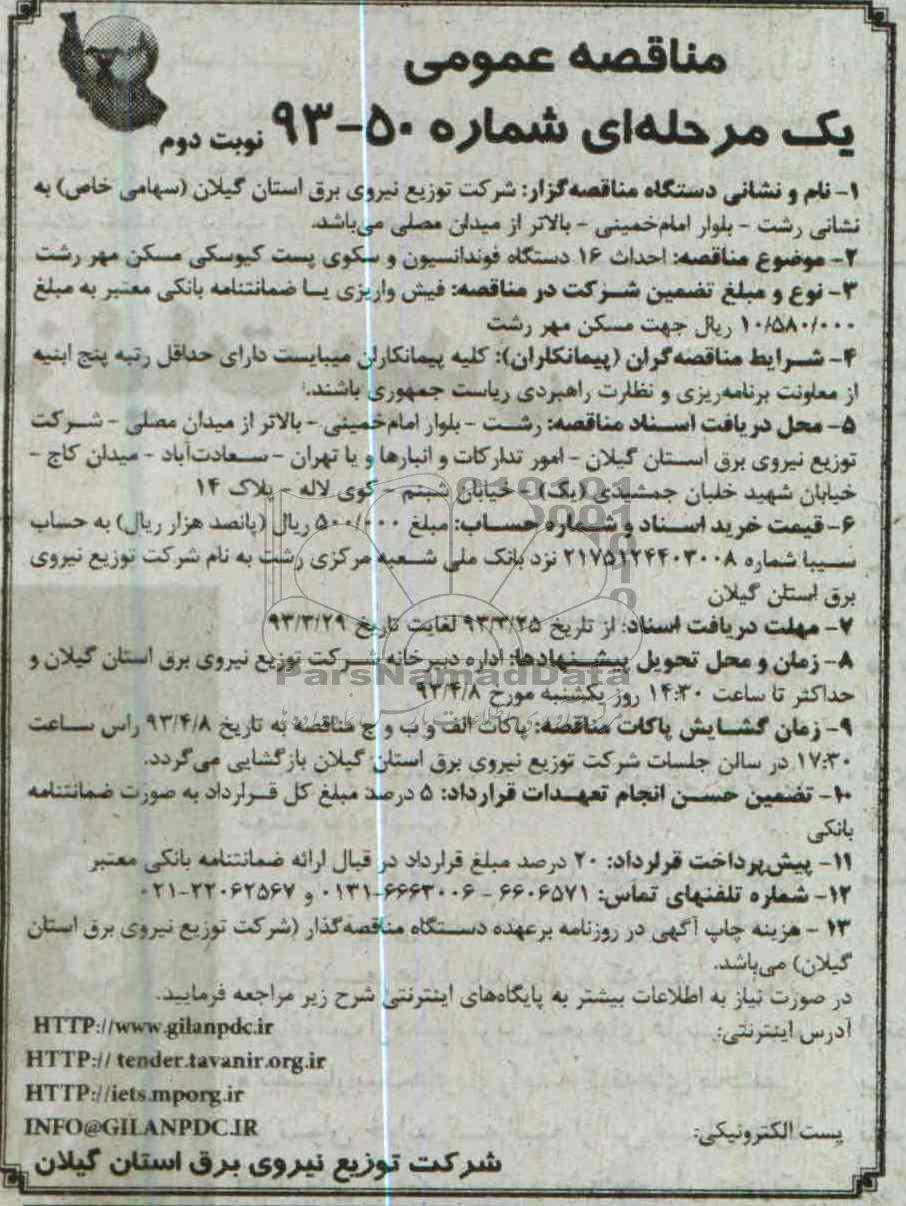 مناقصه عمومی
یک مرحله‌ای شماره ۵۰-۹۳ نوبت دوم
۱- نام و نشانی دستگاه مناقصه‌گزار: شرکت توزیع نیروی برق استان گیلان (سهامی خاص) به
نشانی رشت - بلوار امام‌خمینی - بالاتر از میدان مصلی می‌باشد.
۲- موضوع مناقصه: احداث ۱۶ دستگاه فوندانسیون و سکوی پست کیوسکی مسکن مهر رشت
۳- نوع و مبلغ تضمین شرکت در مناقصه: فیش واریزی یا ضمانتنامه بانکی معتبر به مبلغ
۱۰/۵۸۰/۰۰۰ ریال جهت مسکن مهر رشت
۴- شرایط مناقصه‌گران (پیمانکاران): کلیه پیمانکاران میبایست دارای حداقل رتبه پنج ابنیه
از معاونت برنامه‌ریزی و نظارت راهبردی ریاست جمهوری باشند.
۵- محل دریافت اسناد مناقصه: رشت - بلوار امام‌خمینی - بالاتر از میدان مصلی - شرکت
توزیع نیروی برق استان گیلان - امور تدارکات و انبارها و یا تهران - سعادت‌آباد - میدان کاج -
خیابان شهید خلبان جمشیدی (یک) - خیابان شبنم - کوی لاله - پلاک ۱۴
۶- قیمت خرید اسناد و شماره حساب: مبلغ ۵۰۰/۰۰۰ ریال (پانصد هزار ریال) به حساب
سیبا شماره ۲۱۷۵۱۲۴۴۰۳۰۰۸ نزد بانک ملی شعبه مرکزی رشت به نام شرکت توزیع نیروی
برق استان گیلان
۷- مهلت دریافت اسناد: از تاریخ ۹۳/۳/۲۵ لغایت تاریخ ۹۳/۳/۲۹
۸- زمان و محل تحویل پیشنهادها: اداره دبیرخانه شرکت توزیع نیروی برق استان گیلان و
حداکثر تا ساعت ۱۴:۳۰ روز یکشنبه مورخ ۹۳/۴/۸
۹- زمان گشایش پاکات مناقصه: پاکات الف و ب و ج مناقصه به تاریخ ۹۳/۴/۸ راس ساعت
۱۷:۳۰ در سالن جلسات شرکت توزیع نیروی برق استان گیلان بازگشایی می‌گردد.
۱۰- تضمین حسن انجام تعهدات قرارداد: ۵ درصد مبلغ کل قرارداد به صورت ضمانتنامه
بانکی
۱۱- پیش‌پرداخت قرارداد: ۲۰ درصد مبلغ قرارداد در قبال ارائه ضمانتنامه بانکی معتبر
۱۲- شماره تلفنهای تماس: ۶۶۰۶۵۷۱ - ۶۶۶۳۰۰۶-۰۱۳۱ و ۲۲۰۶۲۵۶۷-۰۲۱
۱۳ - هزینه چاپ آگهی در روزنامه برعهده دستگاه مناقصه‌گذار (شرکت توزیع نیروی برق استان
گیلان) می‌باشد.
در صورت نیاز به اطلاعات بیشتر به پایگاه‌های اینترنتی شرح زیر مراجعه فرمایید.
آدرس اینترنتی: HTTP://www.gilanpdc.ir
HTTP:// tender.tavanir.org.ir
HTTP://iets.mporg.ir
پست الکترونیکی: INFO@GILANPDC.IR
شرکت توزیع نیروی برق استان گیلان
ParsNamadData